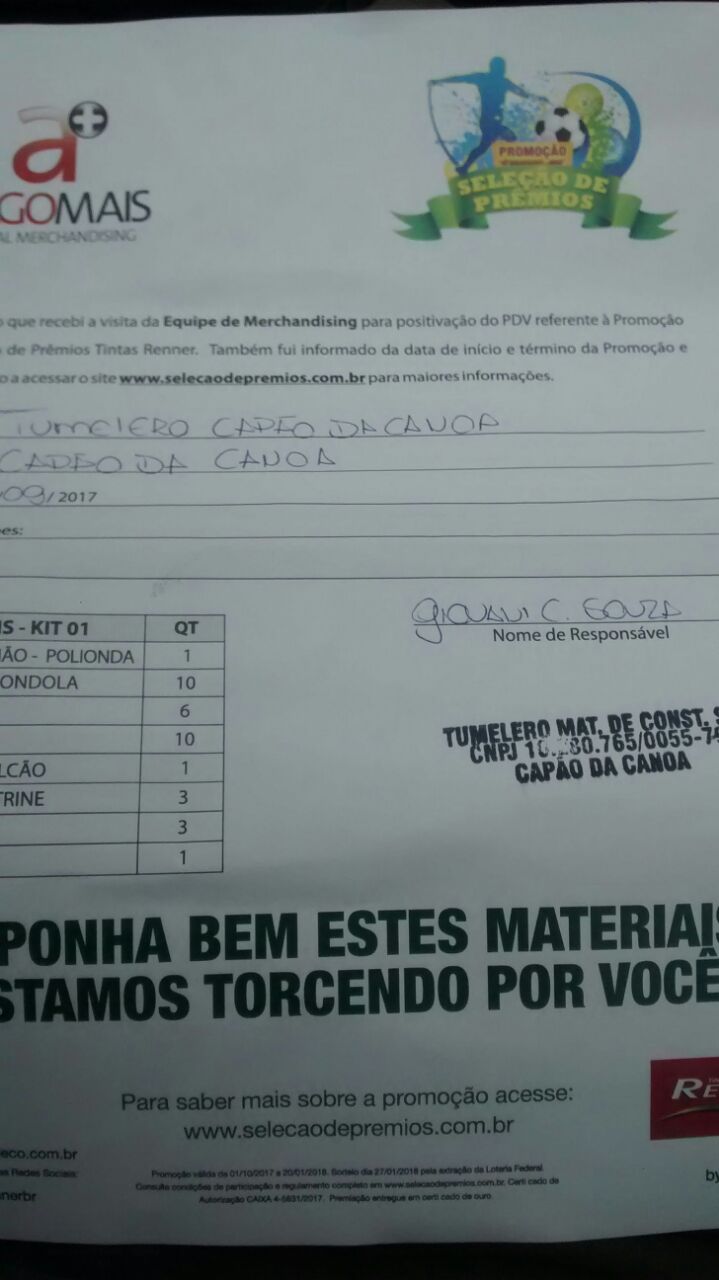 a+
GOMAIS
AL MERCHANDISING
PROMOÇÃO
SELEÇÃO DE
PRÊMIOS
o que recebi a visita da Equipe de Merchandising para positivação do PDV referente à Promoção
de Prêmios Tintas Renner. Também fui informado da data de início e término da Promoção e
o a acessar o site www.selecaodepremios.com.br para maiores informações.
TUMELERO CAPÃO DA CANOA
CAPÃO DA CANOA
/09/2017
es:
GIOVANI C. SOUZA
Nome de Responsável
IS - KIT 01 QT
ÃO - POLIONDA 1
ONDOLA 10
6
10
LCÃO 1
TRINE 3
3
1
TUMELERO MAT. DE CONST. S
CNPJ .765/0055-7
CAPÃO DA CANOA
PONHA BEM ESTES MATERIAIS
STAMOS TORCENDO POR VOCÊ
Para saber mais sobre a promoção acesse:
www.selecaodepremios.com.br
RE
by
eco.com.br
as Redes Sociais:
nerbr
Promoção válida de 01/10/2017 a 20/01/2018. Sorteio dia 27/01/2018 pela extração da Loteria Federal.
Consulte condições de participação e regulamento completo em www.selecaodepremios.com.br. Certificado de
Autorização CAIXA 4-5831/2017. Premiação entregue em certificado de ouro.